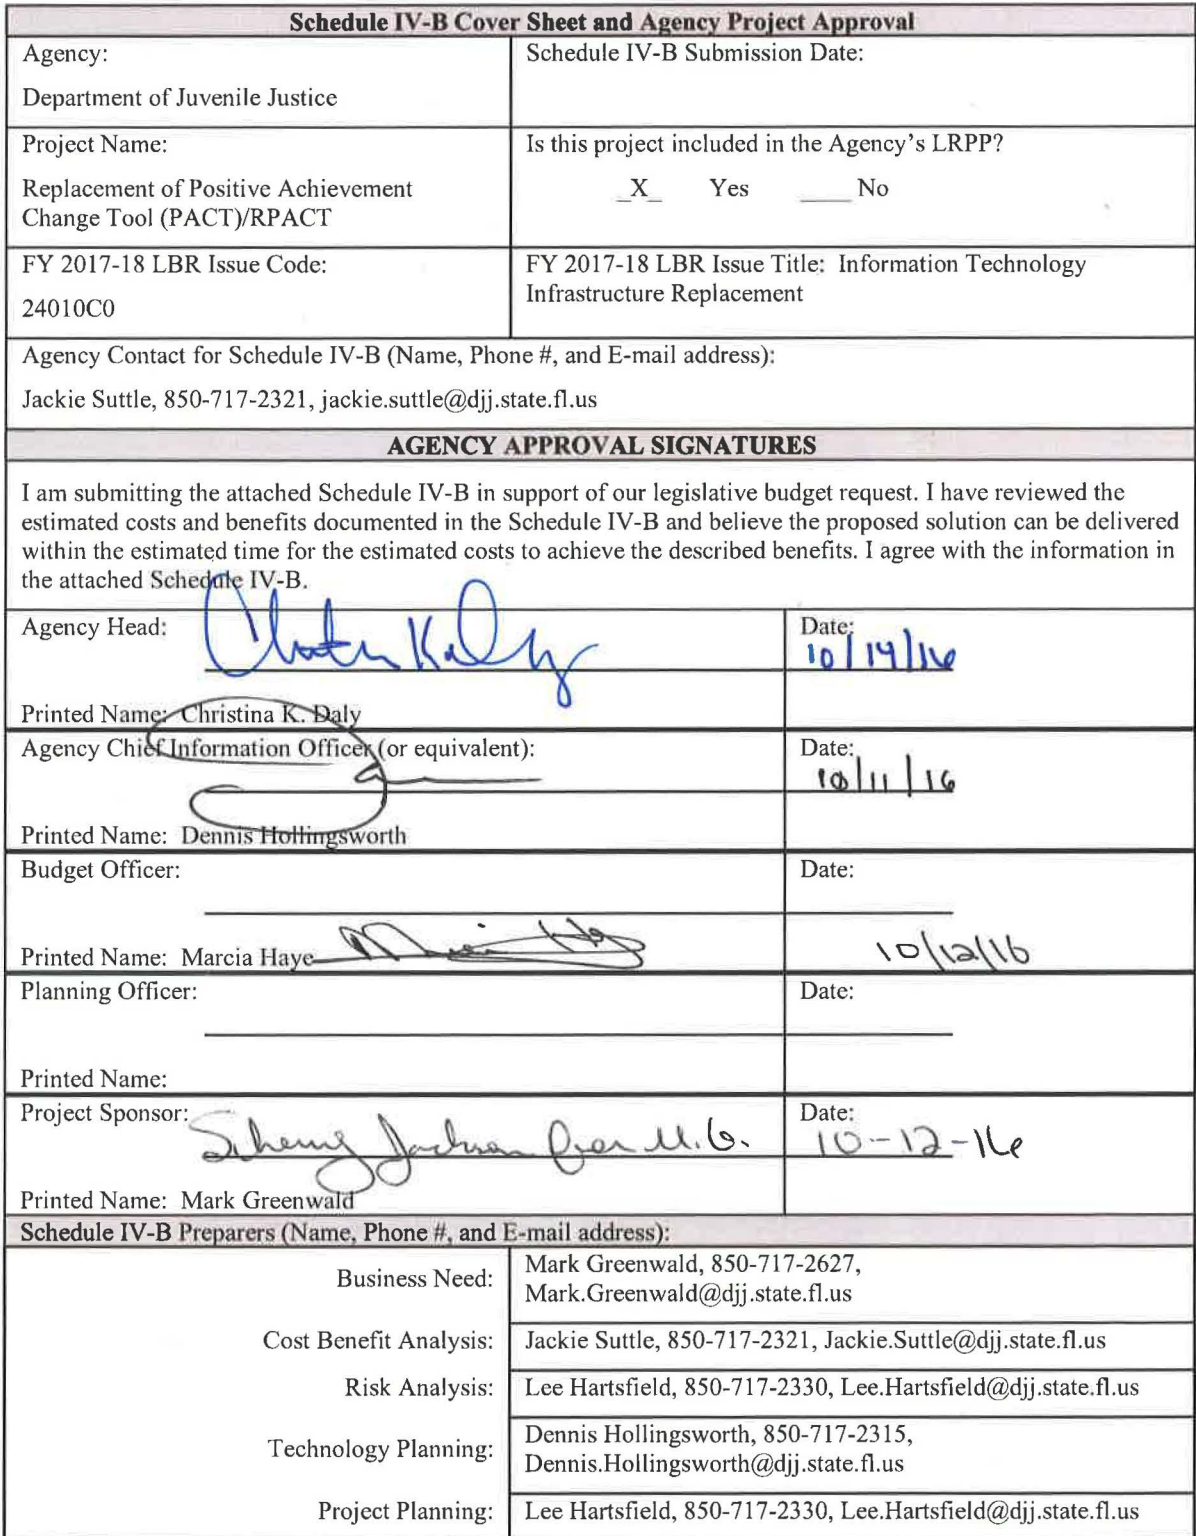 Schedule IV-B Cover Sheet and Agency Project Approval
Agency:
Department of Juvenile Justice
Schedule IV-B Submission Date:
Project Name:
Replacement of Positive Achievement
Change Tool (PACT)/RPACT
Is this project included in the Agency's LRPP?
_X_ Yes ____ No
FY 2017-18 LBR Issue Code:
24010C0
FY 2017-18 LBR Issue Title: Information Technology
Infrastructure Replacement
Agency Contact for Schedule IV-B (Name, Phone #, and E-mail address):
Jackie Suttle, 850-717-2321, jackie.suttle@djj.state.fl.us
AGENCY APPROVAL SIGNATURES
I am submitting the attached Schedule IV-B in support of our legislative budget request. I have reviewed the
estimated costs and benefits documented in the Schedule IV-B and believe the proposed solution can be delivered
within the estimated time for the estimated costs to achieve the described benefits. I agree with the information in
the attached Schedule IV-B.
Agency Head:
Date:
10/14/16
Printed Name: Christina K. Daly
Agency Chief Information Officer (or equivalent):
Date:
10/11/16
Printed Name: Dennis Hollingsworth
Budget Officer:
Date:
Printed Name: Marcia Haye
10/12/16
Planning Officer:
Date:
Printed Name:
Project Sponsor:
Jackson for M.G.
Date:
10-12-16
Printed Name: Mark Greenwald
Schedule IV-B Preparers (Name, Phone #, and E-mail address):
Business Need:
Mark Greenwald, 850-717-2627,
Mark.Greenwald@djj.state.fl.us
Cost Benefit Analysis:
Jackie Suttle, 850-717-2321, Jackie.Suttle@djj.state.fl.us
Risk Analysis:
Lee Hartsfield, 850-717-2330, Lee.Hartsfield@djj.state.fl.us
Technology Planning:
Dennis Hollingsworth, 850-717-2315,
Dennis.Hollingsworth@djj.state.fl.us
Project Planning:
Lee Hartsfield, 850-717-2330, Lee.Hartsfield@djj.state.fl.us